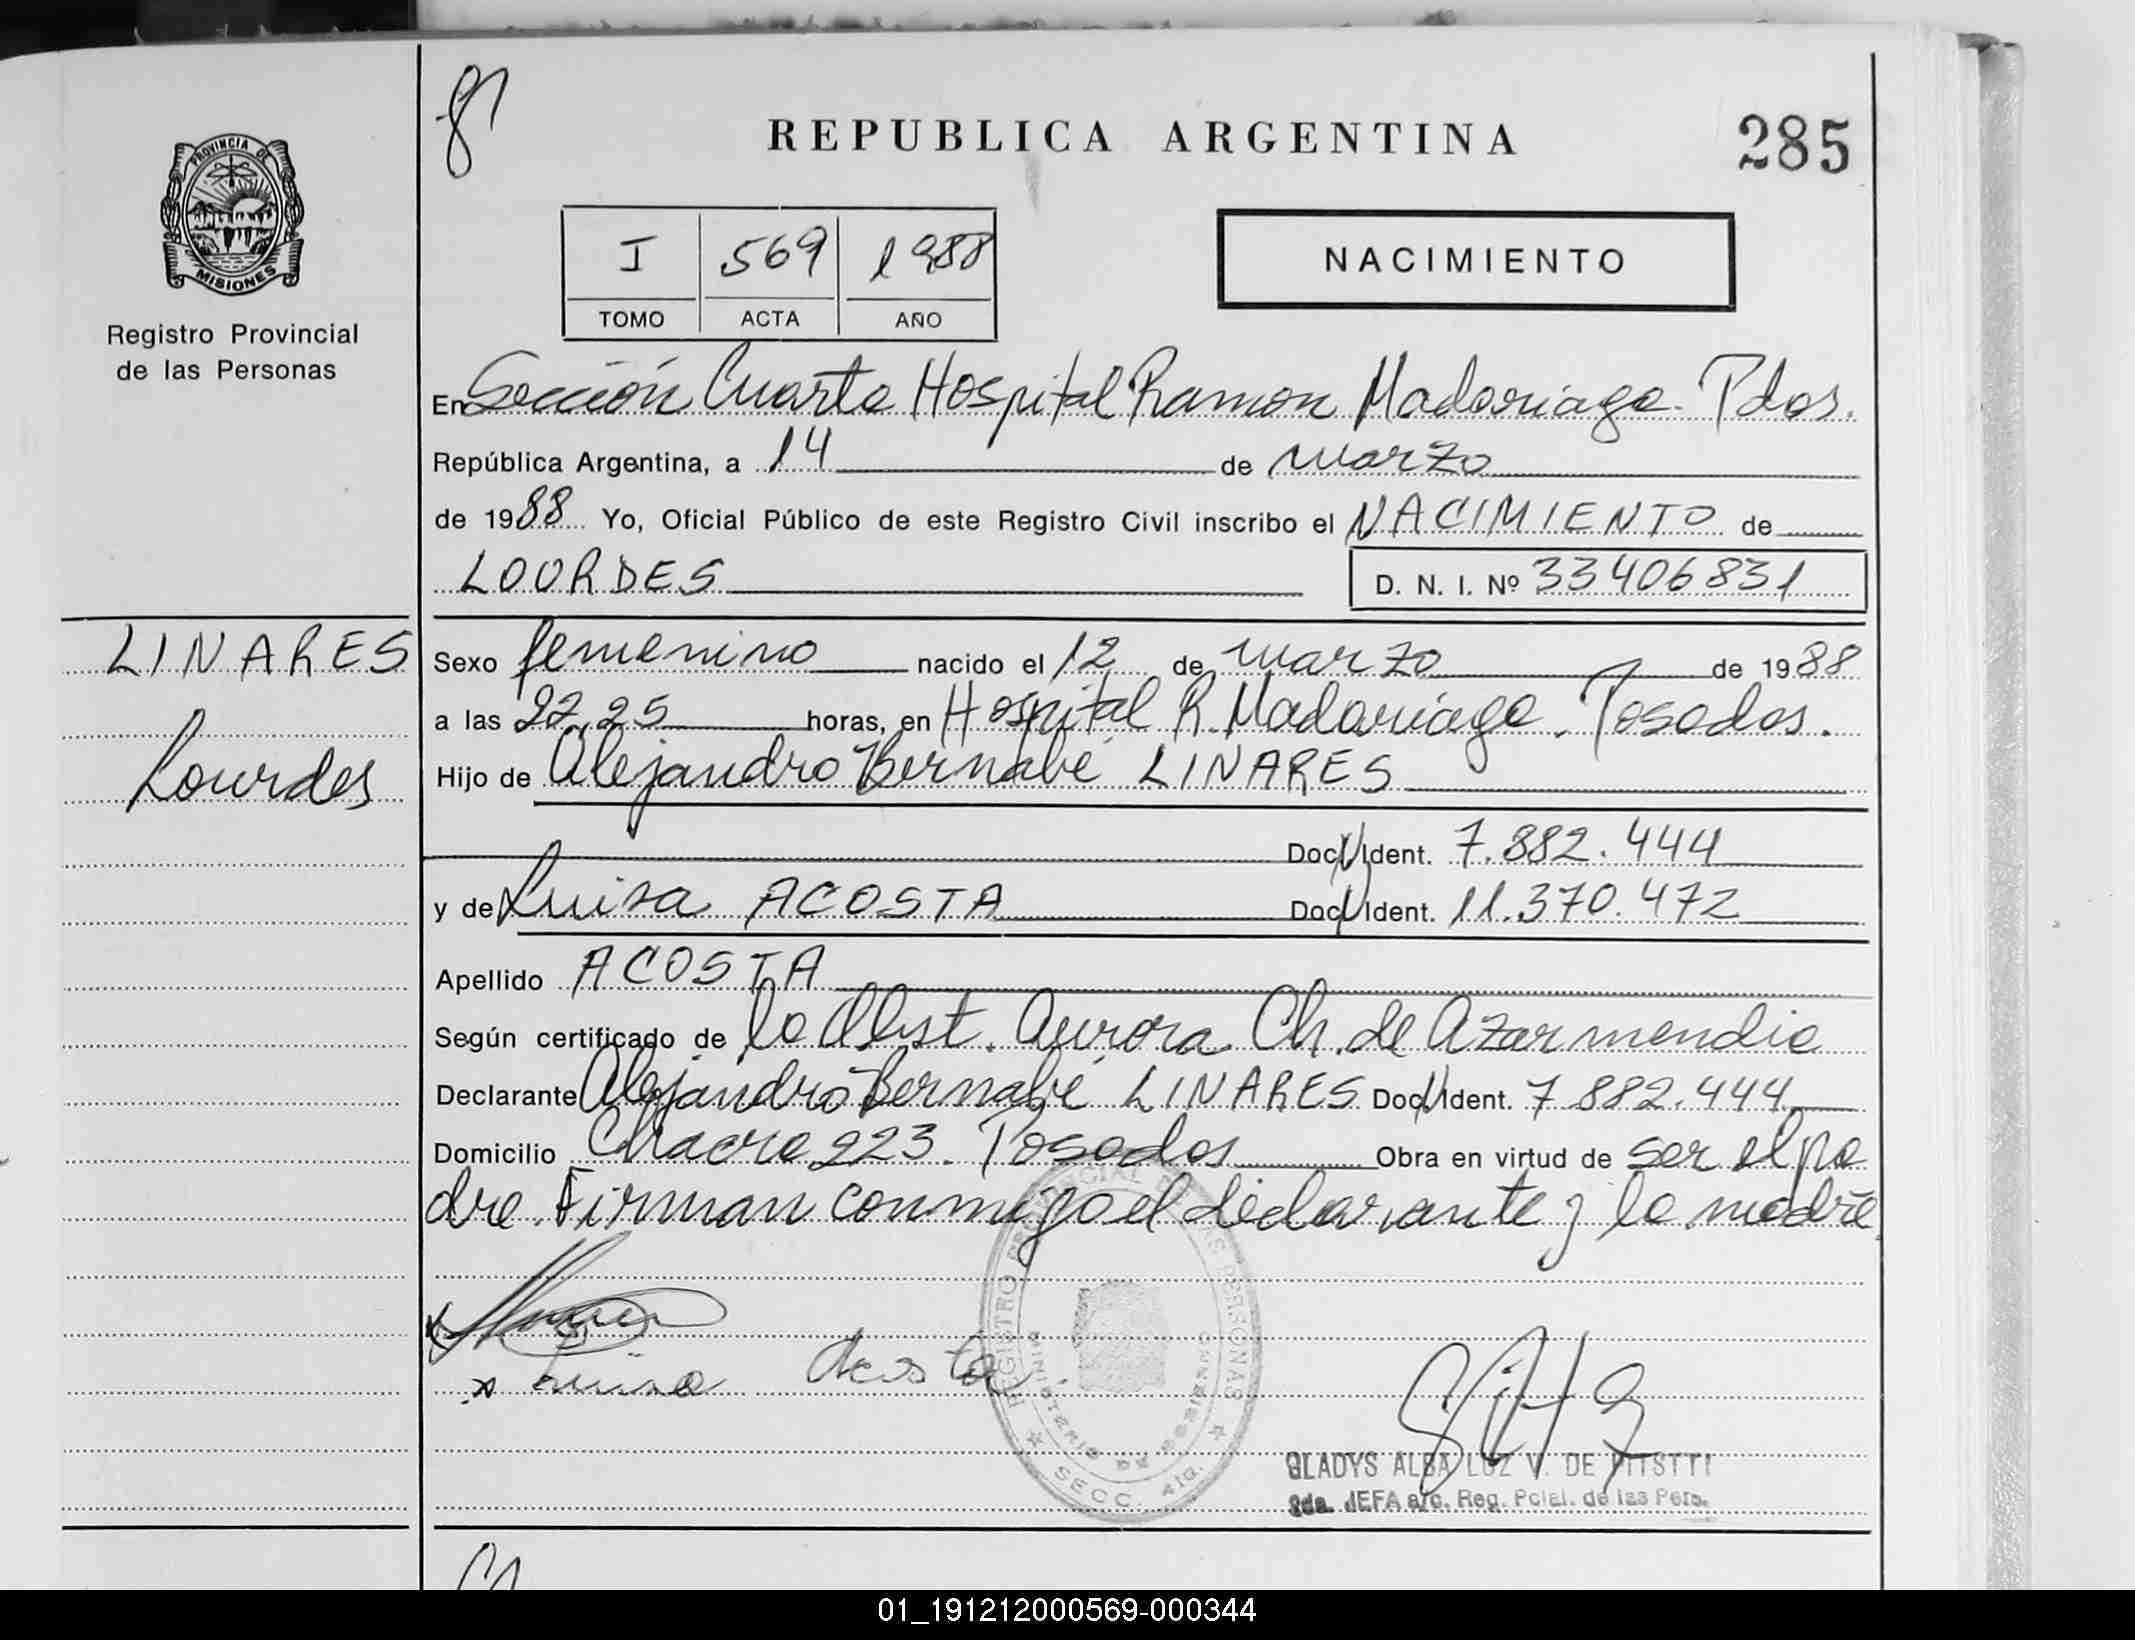 REPUBLICA ARGENTINA
285
PROVINCIA DE
MISIONES
Registro Provincial
de las Personas
I 569 1988
TOMO ACTA AÑO
NACIMIENTO
En Sección Cuarta Hospital Ramon Madariaga. Pdas.
República Argentina, a 14 de marzo
de 1988 Yo, Oficial Público de este Registro Civil inscribo el NACIMIENTO de
LOURDES D. N. I. Nº 33406831
LINARES
Lourdes
Sexo femenino nacido el 12 de marzo de 1988
a las 22,25 horas, en Hospital R. Madariaga. Posadas.
Hijo de Alejandro Bernabé LINARES
Doc. Ident. 7.882.444
y de Luisa ACOSTA Doc. Ident. 11.370.472
Apellido ACOSTA
Según certificado de la Obst. Aurora Ch. de Azarmendia
Declarante Alejandro Bernabé LINARES Doc. Ident. 7.882.444
Domicilio Chacra 223. Posadas Obra en virtud de ser el pa
dre. Firman conmigo el declarante y la madre.
x Luisa Acosta
REGISTRO PROVINCIAL DE LAS PERSONAS
MINISTERIO DE GOBIERNO
SECC. 4ta.
GLADYS ALBA LUZ V. DE
2da. JEFA a/c. Reg. Pcial. de las Pers.
01_191212000569-000344